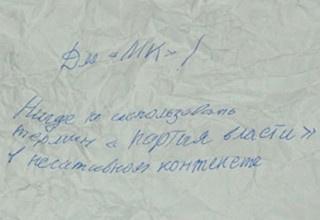 Для «МК» !
Нигде не использовать
термин «партия власти»
в негативном контексте